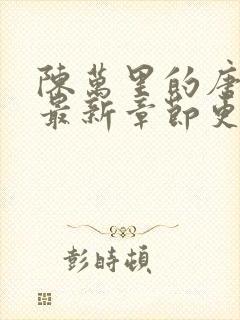 陳萬里的唐
最新章節更
彭時頓